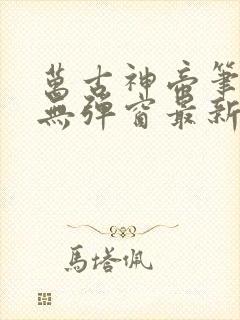 萬古神帝筆
無彈窗最新
馬塔佩